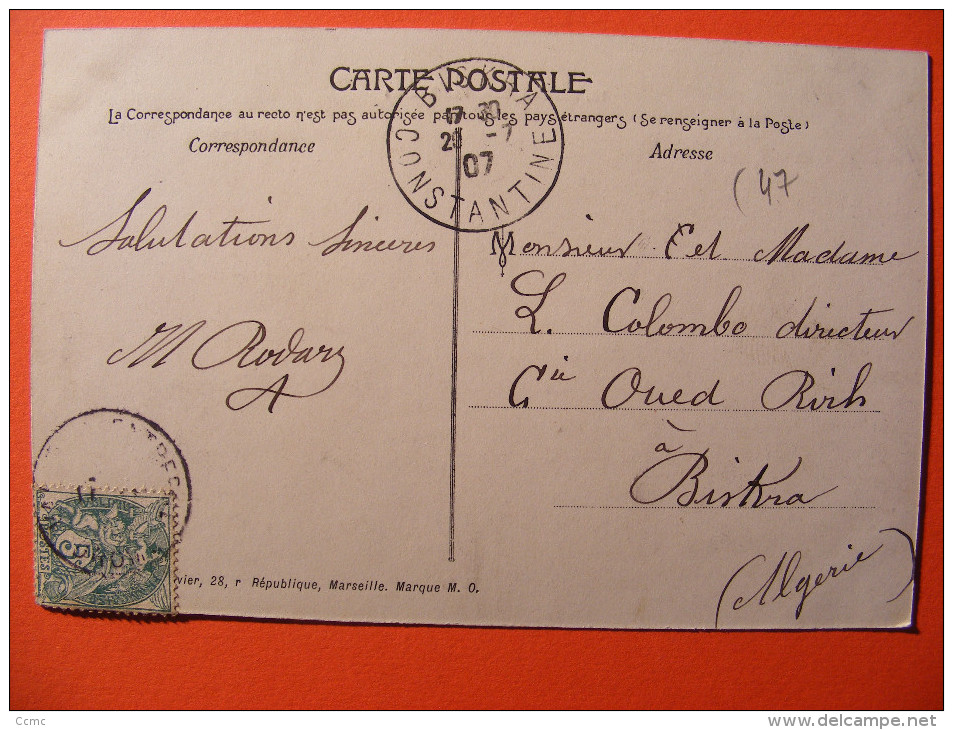 CARTE POSTALE
La Correspondance au recto n'est pas autorisée par tous les pays étrangers (Se renseigner à la Poste)
Correspondance
Adresse
BISKRA
17 30
-7
07
CONSTANTINE
(47
Salutations Sinceres
M Rodary
Monsieur Eet Madame
L. Colombo directeur
Cie Oued Rirh
à
Biskra
(Algerie)
vier, 28, r République, Marseille. Marque M. O.
5
Ccmc
www.delcampe.net